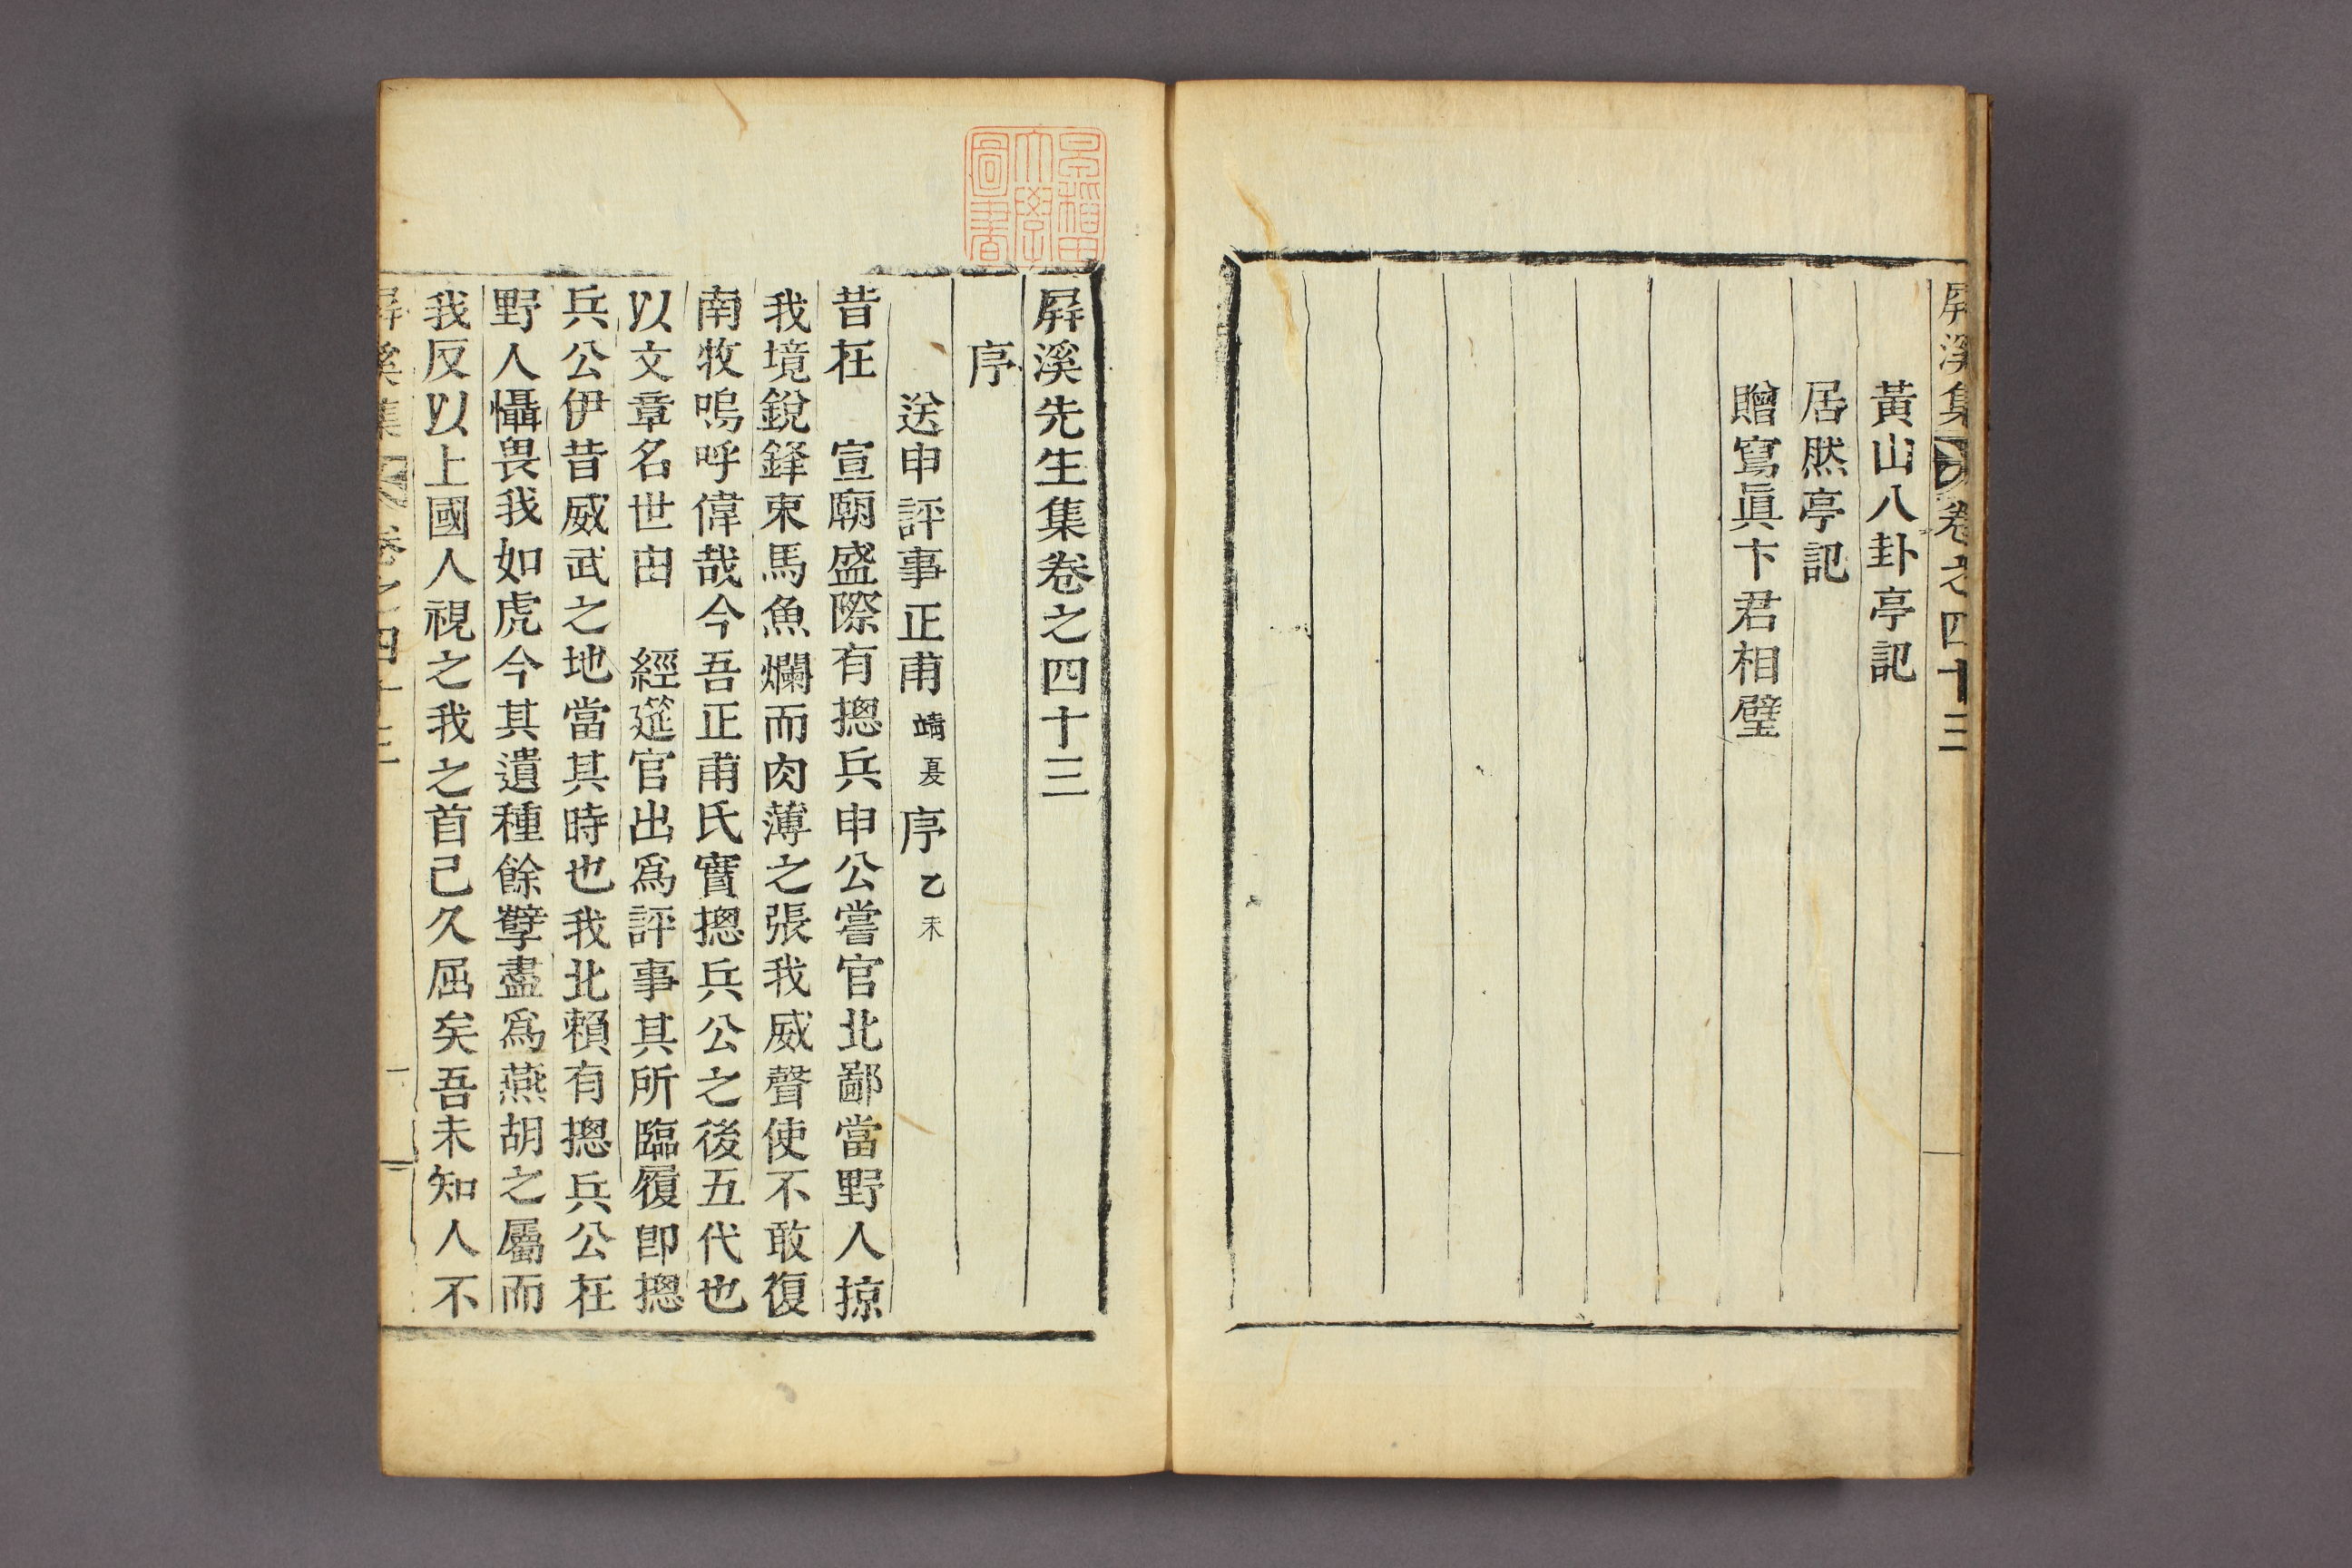 屛溪集 卷之四十三
黃山八卦亭記
居然亭記
贈寫眞卞君相璧
早稻田大學圖書
屛溪先生集卷之四十三
序
送申評事正甫靖夏序乙未
昔在 宣廟盛際有摠兵申公嘗官北鄙當野人掠
我境銳鋒東馬魚爛而肉薄之張我威聲使不敢復
南牧嗚呼偉哉今吾正甫氏實摠兵公之後五代也
以文章名世由 經筵官出爲評事其所臨履卽摠
兵公伊昔威武之地當其時也我北賴有摠兵公在
野人懾畏我如虎今其遺種餘孼盡爲燕胡之屬而
我反以上國人視之我之首已久屈矣吾未知人不
屛溪集 卷之四十三 一